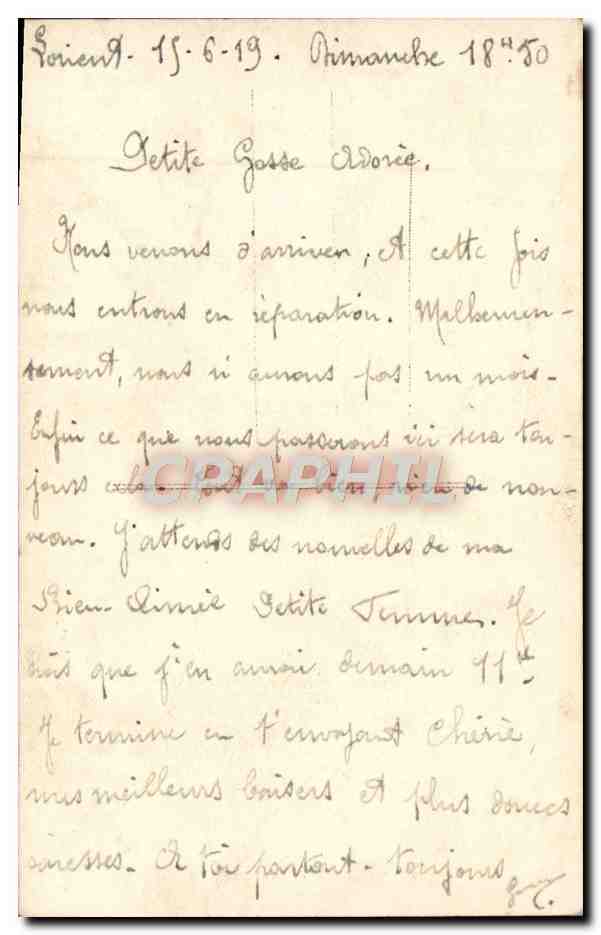 Lorient. 15-6-19. Dimanche 18h.50
Petite Gosse Adorée.
Nous venons d'arriver, et cette fois
nous entrons en réparation. Malheureu-
sement, nous n'aurons pas un mois.
Enfin ce que nous passerons ici sera tou-
jours cela. Tout va bien, rien de nou-
CRAPHIL
veau. J'attends des nouvelles de ma
Bien-Aimée Petite Femme. Je
dois que j'en aurai demain 11h
Je termine en t'envoyant Chérie,
mes meilleurs baisers et plus douces
caresses. A toi partout - toujours